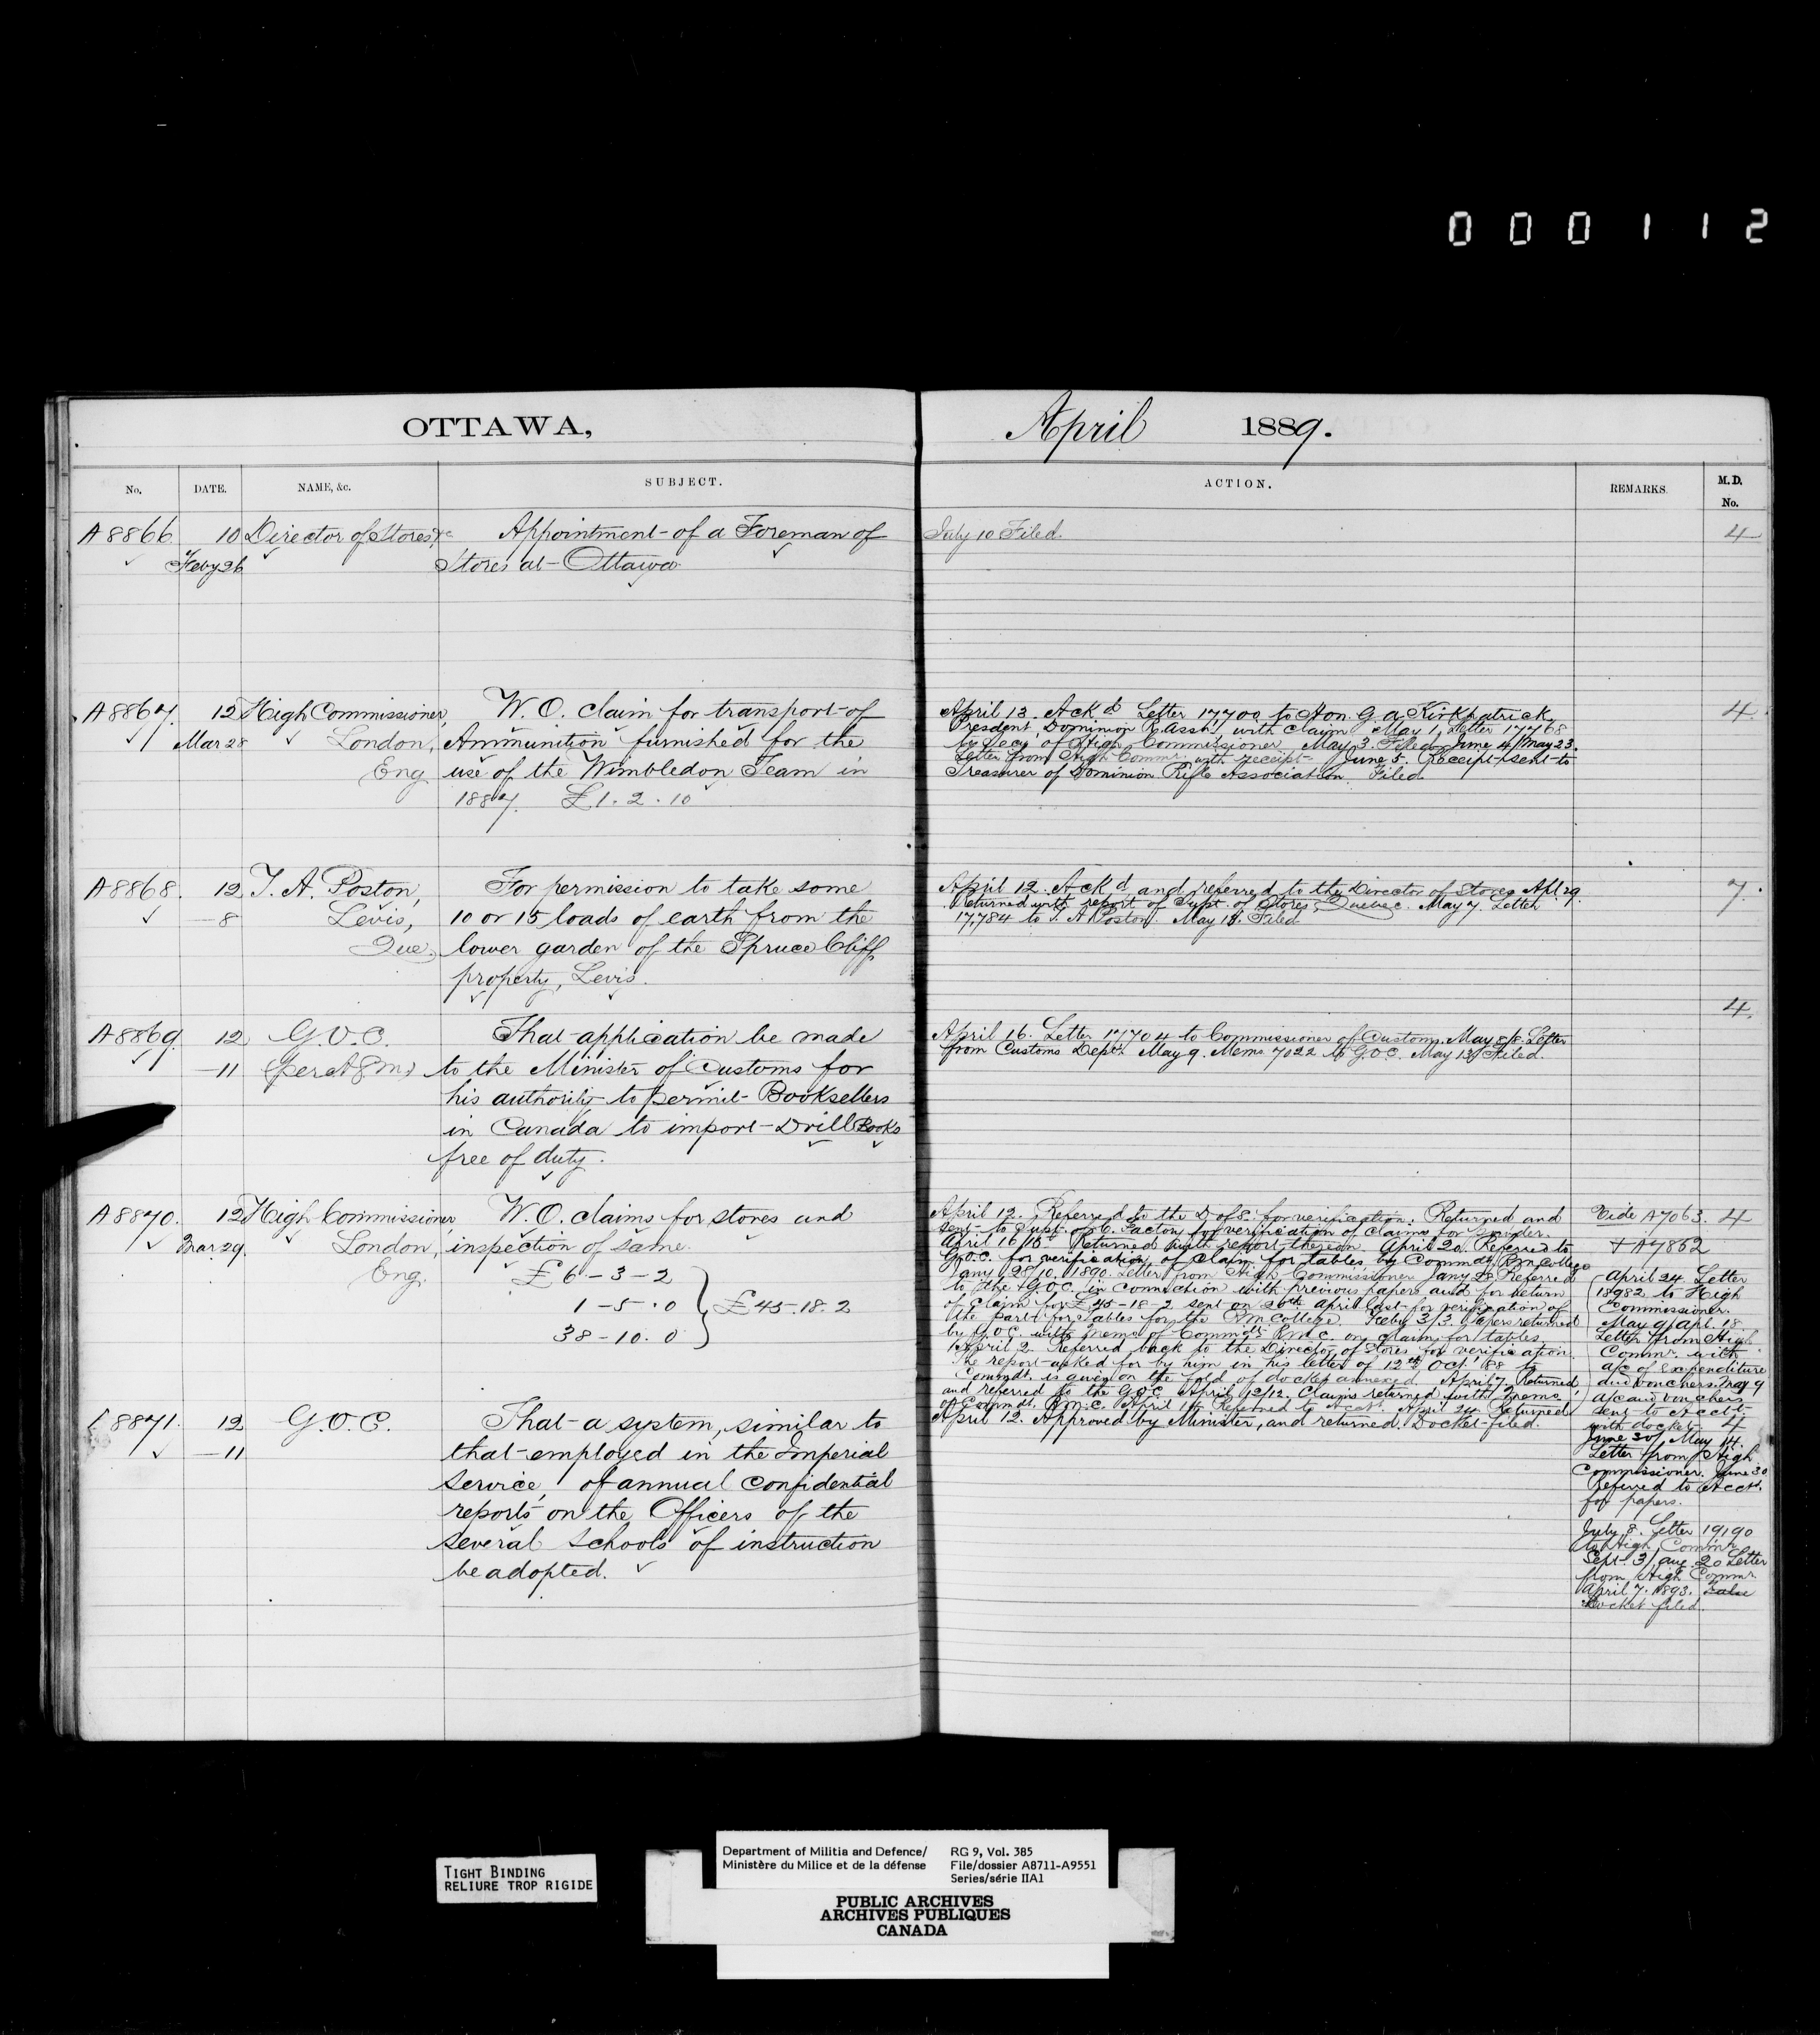 000112
OTTAWA,
April 1889.
No. DATE. NAME, &c. SUBJECT. ACTION. REMARKS. M.D. No.
A8866 10 Director of Stores &c Appointment of a Foreman of
Feby 26 Stores at Ottawa.
July 10 Filed.
4
A8867. 12 High Commissioner, W.O. claim for transport of
Mar 28 London, Ammunition furnished for the
Eng use of the Wimbledon Team in
1887. £1.2.10
April 13. Ackd Letter 17,700 to Hon. G. A. Kirkpatrick,
President, Dominion R. Assn, with claim. May 1, Letter 17768
to Secy of High Commissioner. May 3. Filed. June 4/May 23.
Letter from High Commr. with receipt. June 5. Receipt sent to
Treasurer of Dominion Rifle Association. Filed.
4.
A8868. 12 T. A. Poston, For permission to take some
—8 Levis, 10 or 15 loads of earth from the
Que. lower garden of the Spruce Cliff
property, Levis.
April 12. Ackd and referred to the Director of Stores. Apl. 29.
Returned with report of Supt. of Stores, Quebec. May 7. Letter
17,784 to T. A. Poston. May 18. Filed
7.
A8869. 12 G.O.C. That application be made
—11 (per A.G.M.) to the Minister of Customs for
his authority to permit Booksellers
in Canada to import Drill Books
free of duty.
April 16. Letter 17704 to Commissioner of Customs. May 8/8. Letter
from Customs Dept. May 9. Memo 7022 to G.O.C. May 13. Filed.
4.
A8870. 12 High Commissioner, W.O. claims for stores and
Mar 29. London, inspection of same.
Eng. £6-3-2
1-5.0 } £45-18.2
38-10.0
April 12. Referred to the D of S. for verification. Returned and
sent to Supt. of C. Factory for verification of claims for powder.
April 16/15th Returned with report thereon. April 20. Referred to
G.O.C. for verification of claim for tables, by Commdt R.M. College
Jany 28/10. 1890. Letter from High Commissioner. Jany 28, Referred
to the G.O.C. in connection with previous papers and for return
of claim for £45-18-2 sent on 20th April last for verification of
the part for tables for the R.M. College. Feby 3/3. Papers returned
by G.O.C. with memo of Commdt. R.M.C. on claim for tables.
April 2. Referred back to the Director of Stores for verification.
The report asked for by him in his letter of 12th Oct. '88 to
Commdt. is given on the fold of docket annexed. April 7. Returned
and referred to the G.O.C. April 12/12. Claims returned with memo
of Commdt. R.M.C. April 14. Referred to Acct. April 24. Returned
Vide A7063. 4
+ A7862
April 24. Letter
18982 to High
Commissioner.
May 9/Apl. 18.
Letter from High
Commr. with
a/c of expenditure
and vouchers. May 9
a/c and vouchers
sent to Acctt
with docket.
June 30/May 14.
Letter from High
Commissioner. June 30
Referred to Acctt.
for papers.
July 8. Letter 19190
to High Commr.
Sept. 3/Aug. 20 Letter
from High Commr
April 7. 1893.
Docket filed.
8871. 12 G.O.C. That a system, similar to
—11 that employed in the Imperial
Service, of annual confidential
reports on the Officers of the
several Schools of instruction
be adopted.
April 12. Approved by Minister, and returned. Docket filed.
4
TIGHT BINDING
RELIURE TROP RIGIDE
Department of Militia and Defence/
Ministère du Milice et de la défense
RG 9, Vol. 385
File/dossier A8711-A9551
Series/série IIA1
PUBLIC ARCHIVES
ARCHIVES PUBLIQUES
CANADA